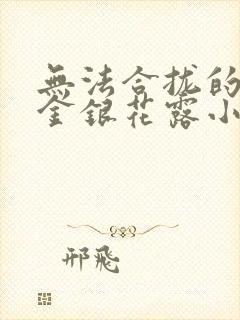 無法合拢的
金銀花露小
邢飛